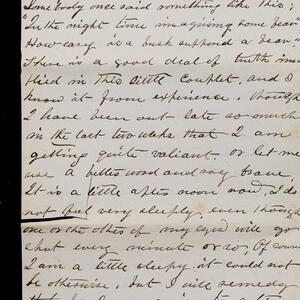 Somebody once said something like this;
"In the night time imagining some fear
How easy is a bush supposed a bear"
There is a good deal of truth im
plied in this little couplet, and I
know it from experience, though
I have been out late so much
in the last two weeks that I am
getting quite valiant. or let me
use a better word and say brave.
It is a little after noon now, I do
not feel very sleeply, even though
one or the other of my eyes will go
shut every minute or so, Of course
I am a little sleepy it could not
be otherwise, but I will remedy